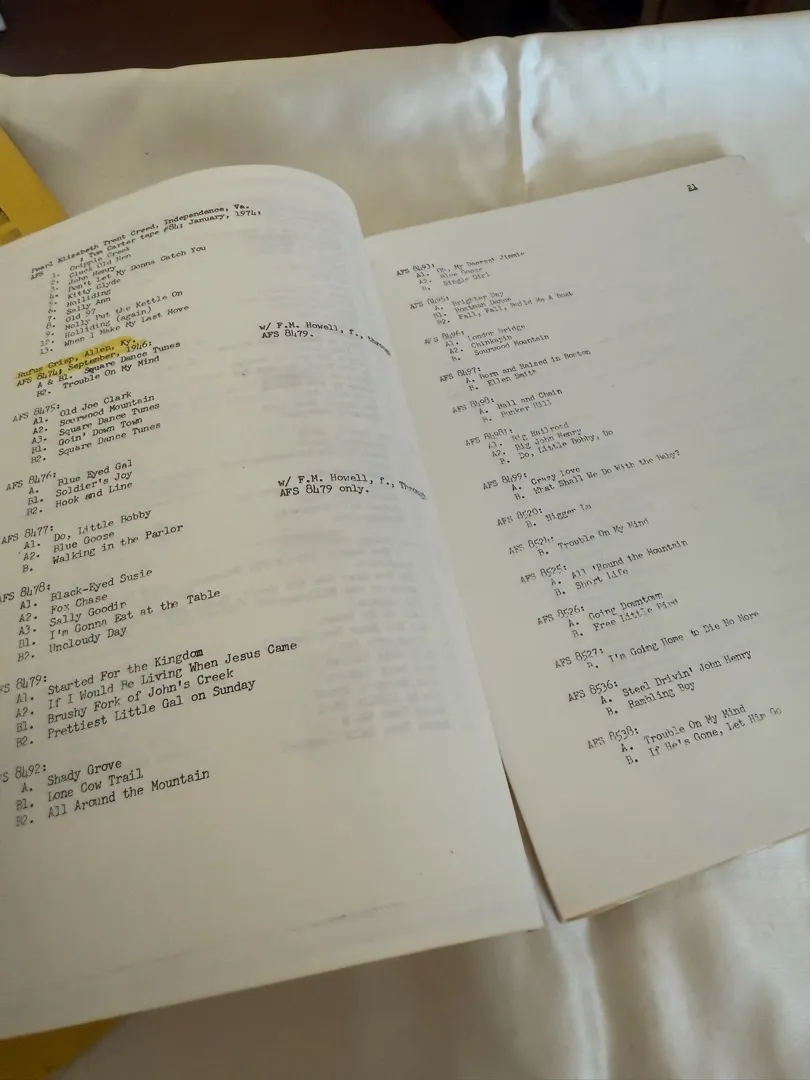 Pearl Elizabeth Trent Creed, Independence, Va.
AFS ; Tom Carter tape #84; January, 1974:
1. Cripple Creek
2. Cluck Old Hen
3. John Henry
4. Don't Let My Donna Catch You
5. Kitty Clyde
6. Holliding
7. Sally Ann
8. Old 97
9. Molly Put the Kettle On
12. Holliding (again)
13. When I Make My Last Move
Rufus Crisp, Allen, Ky.
AFS 8474; September, 1946:
A & B1. Square Dance Tunes
B2. Trouble On My Mind
w/ F.M. Howell, f., through
AFS 8479.
AFS 8475:
A1. Old Joe Clark
A2. Sourwood Mountain
A3. Square Dance Tunes
B1. Goin' Down Town
B2. Square Dance Tunes
AFS 8476:
A. Blue Eyed Gal
B1. Soldier's Joy
B2. Hook and Line
w/ F.M. Howell, f., Through
AFS 8479 only.
AFS 8477:
A1. Do, Little Bobby
A2. Blue Goose
B. Walking in the Parlor
AFS 8478:
A1. Black-Eyed Susie
A2. Fox Chase
A3. Sally Goodin
B1. I'm Gonna Eat at the Table
B2. Uncloudy Day
FS 8479:
A1. Started For the Kingdom
A2. If I Would Be Living When Jesus Came
B1. Brushy Fork of John's Creek
B2. Prettiest Little Gal on Sunday
S 8492:
A. Shady Grove
B1. Lone Cow Trail
B2. All Around the Mountain
21
AFS 8493:
A1. Oh, My Dearest Jimmie
A2. Blue Goose
B. Single Girl
AFS 8495:
A. Brighter Day
B1. Boatman Dance
B2. Fall, Fall, Build Me A Boat
AFS 8496:
A1. London Bridge
A2. Chinkapin
B. Sourwood Mountain
AFS 8497:
A. Born and Raised in Boston
B. Ellen Smith
AFS 8498:
A. Ball and Chain
B. Bunker Hill
AFS
A1. Big Railroad
A2. Big John Henry
B. Do, Little Bobby, Do
AFS 8499:
A. Crazy Love
B. What Shall We Do With the Baby?
AFS 8520:
B. Nigger
AFS 8524:
B. Trouble On My Mind
AFS 8525:
A. All 'Round the Mountain
B. Short Life
AFS 8526:
A. Going Downtown
B. Free Little Bird
AFS 8527:
B. I'm Going Home to Die No More
AFS 8536:
A. Steel Drivin' John Henry
B. Rambling Boy
AFS 8538:
A. Trouble On My Mind
B. If He's Gone, Let Him Go